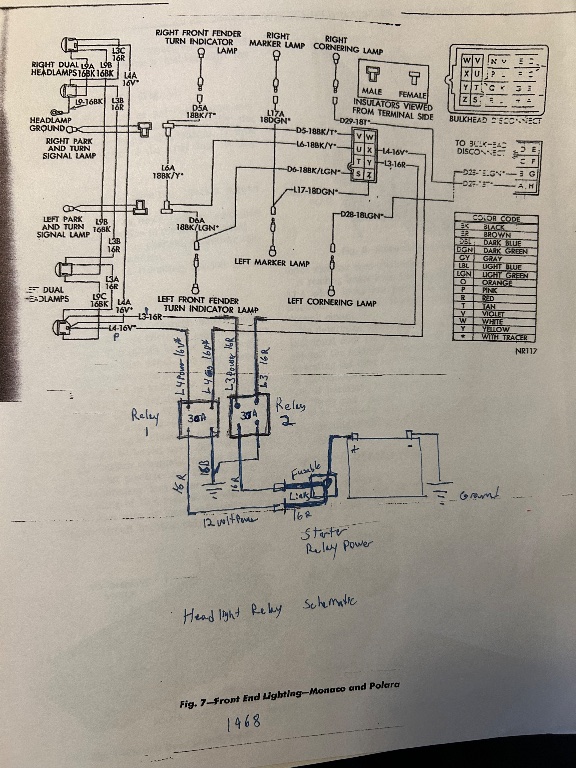 RIGHT FRONT FENDER
TURN INDICATOR
LAMP
RIGHT
MARKER LAMP
RIGHT
CORNERING LAMP
L3C
16R
RIGHT DUAL
HEADLAMPS
L9A
16BK
L9B
16BK
L4A
16V*
L9-16BK
L3B
16R
HEADLAMP
GROUND
RIGHT PARK
AND TURN
SIGNAL LAMP
D5A
18BK/T*
L17A
18DGN*
MALE
FEMALE
INSULATORS VIEWED
FROM TERMINAL SIDE
W V
X U
Y T
Z S
BULKHEAD DISCONNECT
D29-18T*
D5-18BK/T*
L6-18BK/Y*
V W
U X
T Y
S Z
L4-16V*
L3-16R
TO BULKHEAD
DISCONNECT
D E
C F
B G
A H
L6A
18BK/Y*
D6-18BK/LGN*
L17-18DGN*
D28-18LGN*
D6A
18BK/LGN*
LEFT PARK
AND TURN
SIGNAL LAMP
L9B
16BK
L3B
16R
LEFT MARKER LAMP
LEFT CORNERING LAMP
LEFT FRONT FENDER
TURN INDICATOR LAMP
DUAL
L3A
16R
L9C
16BK
L4A
16V*
L3-16R
L4-16V*
P
COLOR CODE
BK BLACK
BR BROWN
DBL DARK BLUE
DGN DARK GREEN
GY GRAY
LBL LIGHT BLUE
LGN LIGHT GREEN
O ORANGE
P PINK
R RED
T TAN
V VIOLET
W WHITE
Y YELLOW
* WITH TRACER
NR117
L4 Power 16V*
L3 Power 16R
L3
16R
Relay
1
30A
30A
Relay
2
16R
16B
16R
Fusable
Link
16R
12 volt Power
+
-
Ground
Starter
Relay Power
Headlight Relay Schematic
Fig. 7—Front End Lighting—Monaco and Polara
1968